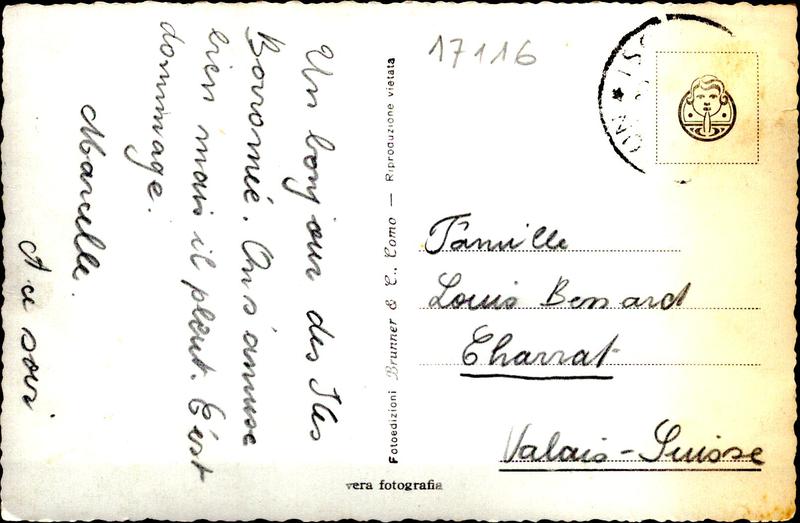 Un bonjour des Iles
Borromée. On s'amuse
bien mais il pleut. C'est
dommage.
Marcelle.
A ce soir
Fotoedizioni Brunner & C., Como — Riproduzione vietata
17116
Famille
Louis Bessard
Charrat
Valais-Suisse
vera fotografia